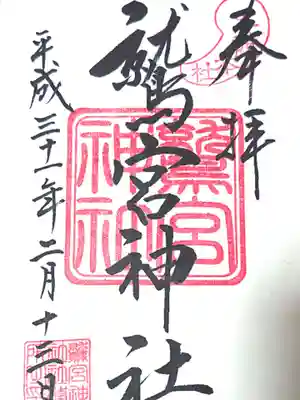 奉拝
鷲宮神社
平成三十一年二月十三日
鷲宮神社